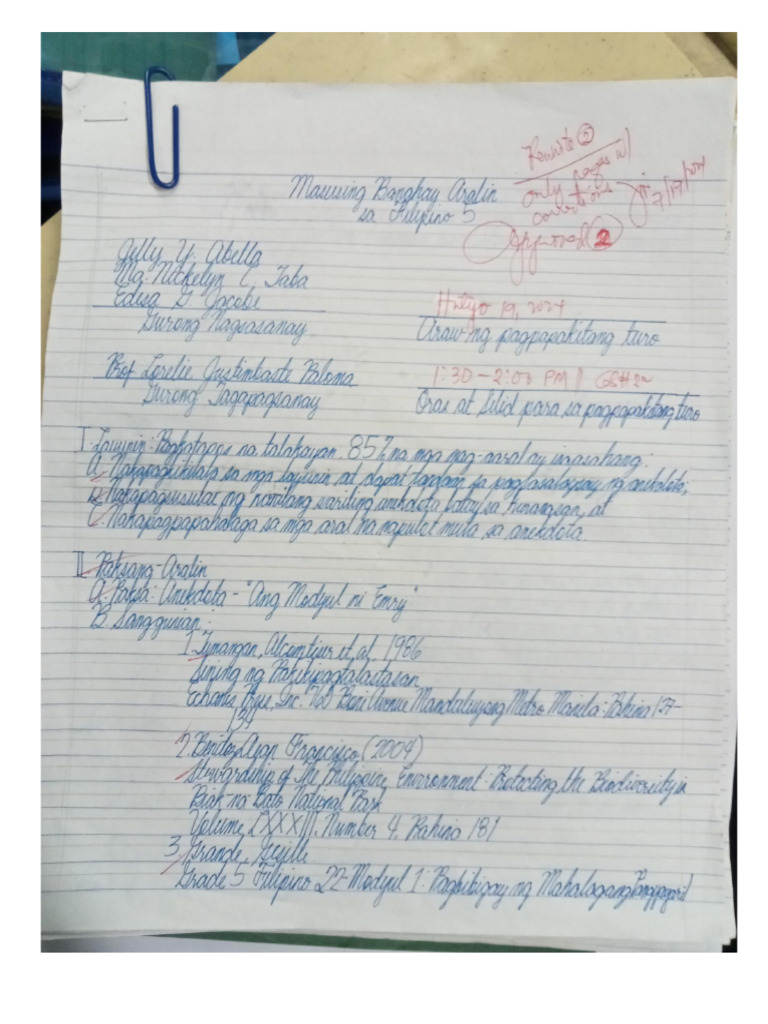 Rewrite
only pages w/
corrections
Approved 2
7/17/2024
Masusing Banghay Aralin
sa Filipino 5
Jully Y. Abella
Ma. Nickelyn C. Taba
Edisa G. Jacobe
Gurong Nagsasanay
Hulyo 19, 2024
Araw ng pagpapakitang turo
Prof. Lorelie Justinbaste Paloma
Gurong Tagapagsanay
1:30 - 2:00 PM
Oras at Silid para sa pagpapakitang turo
I. Layunin: Pagkatapos na talakayan 85% na mga mag-aaral ay inaasahang:
A. sa mga layunin at dapat tandaan sa pagsasalaysay ng anekdota;
B. Nakapagsusulat ng sariling anekdota batay sa karanasan, at
C. Nakapagpapahalaga sa mga aral na napulot mula sa anekdota.
II. Paksang-Aralin
A. Paksa: Anekdota - "Ang Modyul ni Emry"
B. Sanggunian:
1. Tumangan, Alcomtiser et, al. 1986
Sining ng Pakikipagtalastasan
Inc. 760 Boni Avenue Mandaluyong Metro Manila: Pahina 127-
131
2. Francisco (2004)
Stewardship of the Philippine Environment: Protecting the Biodiversity in
Biak na Bato National Park
Volume LXXXIII. Number 4. Pahina 181
3. Grande,
Grade 5 Filipino Q2-Modyul 1: Pagbibigay ng Mahalagang Pangyayari